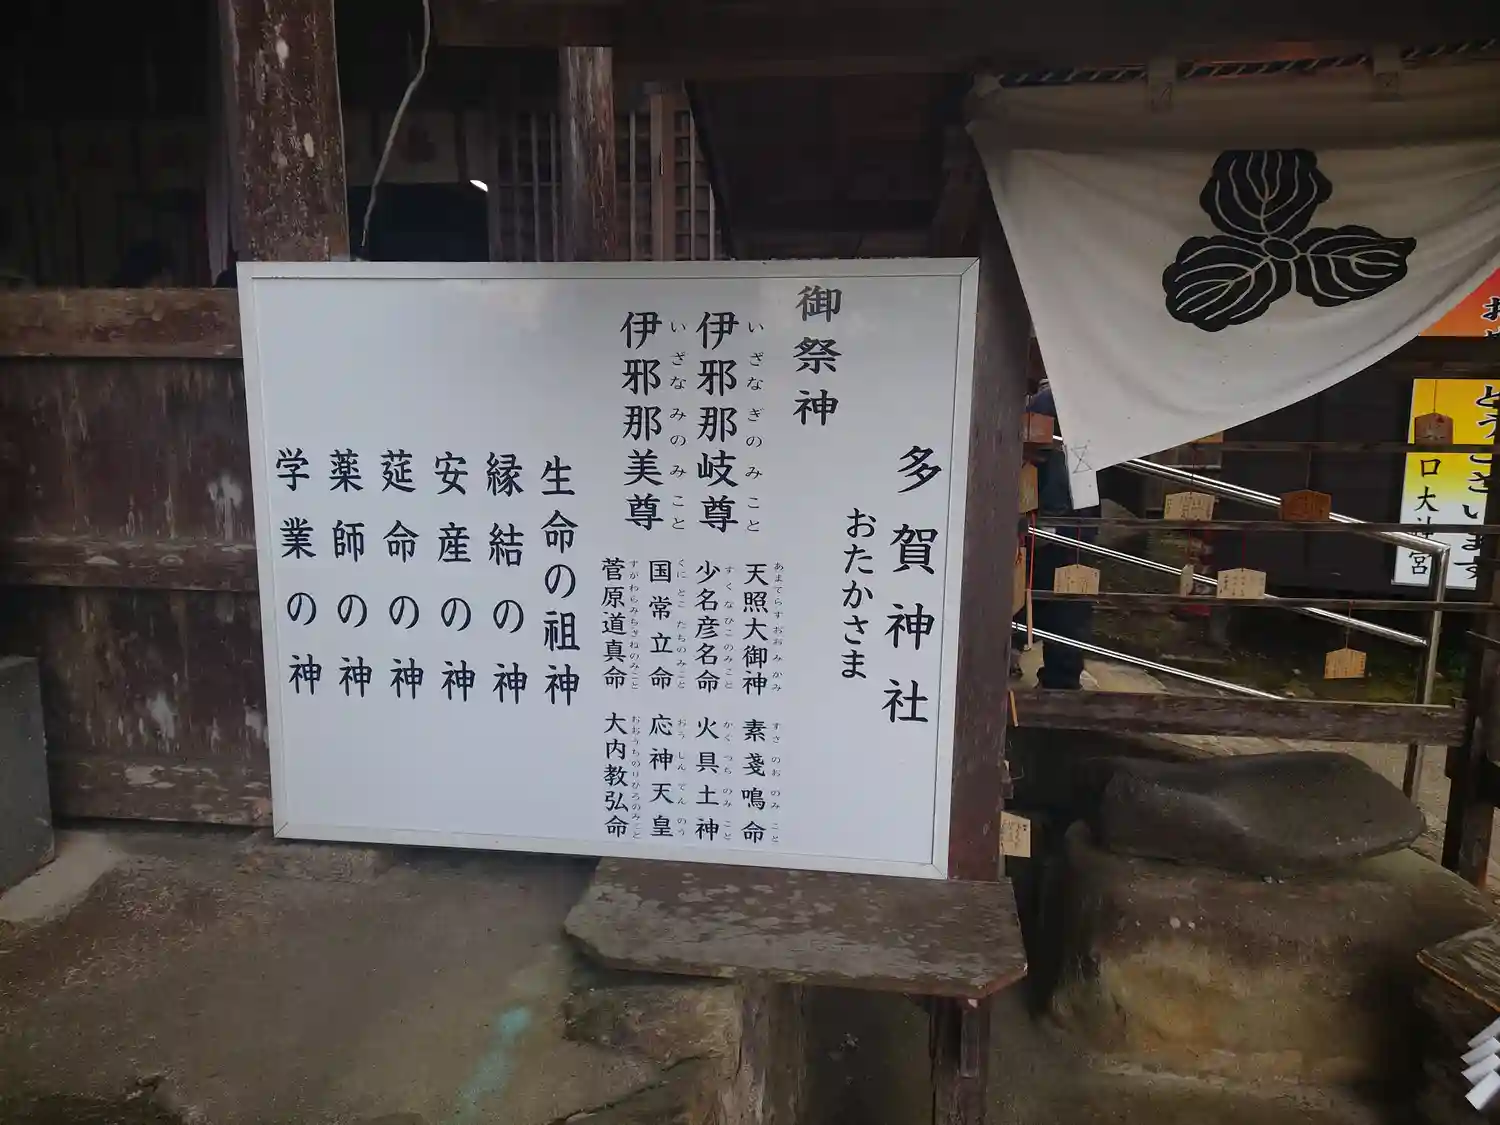 多賀神社
おたかさま
御祭神
伊邪那岐尊
いざなぎのみこと
伊邪那美尊
いざなみのみこと
天照大御神
あまてらすおおみかみ
素戔鳴命
すさのおのみこと
少名彦名命
すくなひこのみこと
火具土神
かぐつちのみこと
国常立命
くにとこたちのみこと
応神天皇
おうしんてんのう
菅原道真命
すがわらみちざねのみこと
大内教弘命
おおうちのりひろのみこと
生命の祖神
縁結の神
安産の神
莚命の神
薬師の神
学業の神
とうございます
口大神宮